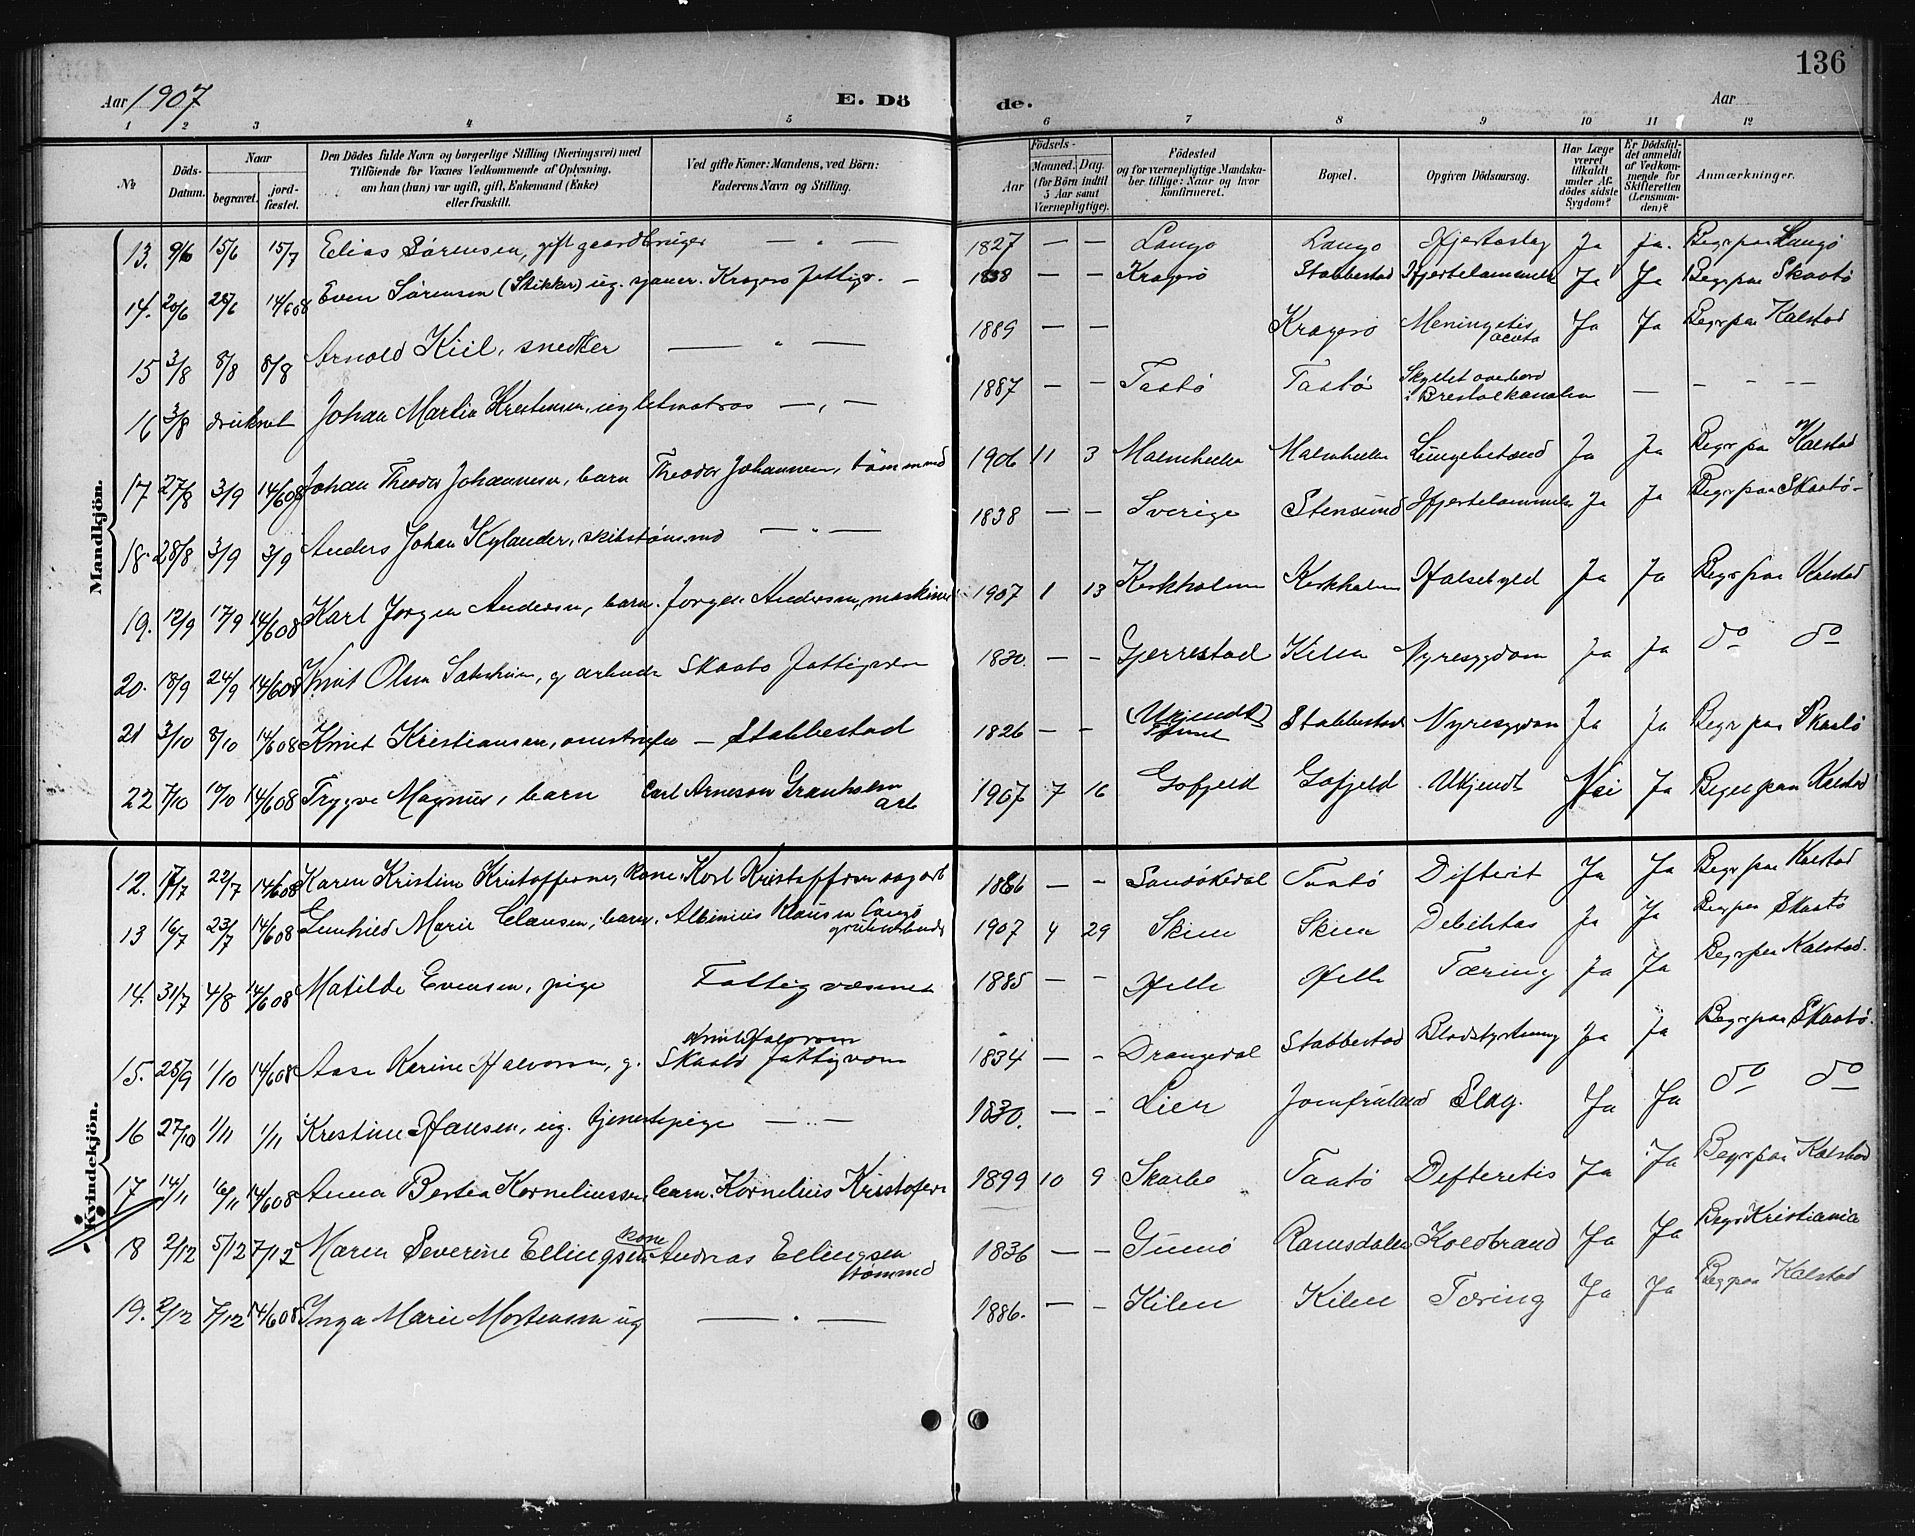 136
Aar 1907
E. Dö
de.
Aar
1 2 3 4 5 6 7 8 9 10 11 12
No
Döds-Datum.
Naar
begravet.
jord-fæstet.
Den Dödes fulde Navn og borgerlige Stilling (Næringsvei) med
Tilföiende for Voxnes Vedkommende af Oplysning,
om han (hun) var ugift, gift, Enkemand (Enke)
eller fraskilt.
Ved gifte Koner: Mandens, ved Börn:
Faderens Navn og Stilling.
Födsels-
Aar
Maaned. Dag.
(for Börn indtil
5 Aar samt
Værnepligtige).
Födested
og for værnepligtige Mandska-
ber tillige: Naar og hvor
konfirmeret.
Bopæl.
Opgiven Dödsaarsag.
Har Læge
været
tilkaldt
under Af-
dödes sidste
Sygdom?
Er Dödsfal-
det anmeldt
af Vedkom-
mende for
Skifteretten
(Lensman-
den)?
Anmærkninger.
Mandkjön.
13. 9/6 15/6 15/7 Elias Sørensen, gift gaardbruger — " — 1827 — — Langø Langø Hjerteslag Ja Ja. Begr paa Langø
14. 20/6 28/6 14/6 08 Even Sørensen (Stikker) ug. Kragerø Fattigv. — 1838 — — Kragerø Stabbestad Hjertelammelse Ja Ja Begr paa Skaatø
15 3/8 8/8 8/8 Arnold Kiil, snedker — " — 1889 — — Kragerø Meningitis acuta Ja Ja Begr paa Kalstad
16 3/8 druknet Johan Martin Kristensen, ug letmatros — " — 1887 — — Taatø Taatø Skyllet overbord i Bristolkanalen — — — — —
17 27/8 3/9 14/6 08 Johan Theodor Johannesen, barn Theodor Johannesen, tømmmd 1906 11 3 Malmhella Malmhella Lungebetænd Ja Ja Begr paa Kalstad
18. 28/8 3/9 3/9 Anders Johan Kylander, skibstømmd — " — 1838 — — Sverige Stensund Hjertelammelse Ja Ja Begr paa Skaatø
19. 12/9 17/9 14/6 08 Karl Jørgen Andersen, barn. Jørgen Andersen, maskinist 1907 1 13 Kirkholmen Kirkholmen Halsebyld Ja Ja Begr paa Kalstad
20. 18/9 24/9 14/6 08 Knut Olsen g arbeider Skaatø Fattigvæsen 1830 — — Gjerrestad Kilen Nyresygdom Ja Ja do do
21 3/10 8/10 14/6 08 Knut Kristiansen, omstreifer — Stabbestad 1826 — — (Ukjendt) Stabbestad Nyresygdom Ja Ja Begr paa Skaatø
22 7/10 12/10 14/6 08 Trygve Magnus, barn Carl Arneson Granholm arb 1907 7 16 Gofjeld Gofjeld Ukjendt Nei Ja Begr paa Kalstad
Kvindekjön.
12. 17/7 22/7 14/6 08 Karen Kristine Kristoffersen, Kone. Karl Kristoffersen sagarb 1886 — — Sandøkedal Taatø Difterit Ja Ja Begr paa Kalstad
13 16/7 23/7 14/6 08 Gunhild Marie Clausen, barn. Albinius Klausen Langø grubearbeider 1907 4 29 Skien Skien Debilitas Ja Ja Begr paa Skaatø
14. 31/7 4/8 14/6 08 Matilde Evensen, pige Fattigvæsenet 1885 — — Helle Helle Tæring Ja Ja Begr paa Kalstad.
15. 25/9 1/10 14/6 08 Aase Karine Halvorsen, g. Knut Halvorsen Skaatø fattigvæsen 1834 — — Drangedal Stabbestad Blodstyrtning Ja Ja Begr paa Skaatø.
16 27/10 1/11 1/11 Kristine Hansen, ug. tjenestepige — " — 1830. — — Lier Jomfruland Slag. Ja Ja do do
17 14/11 16/11 14/6 08 Anna Bertea Korneliussen, barn. Kornelius Kristofersen 1899 10 9 Skarbo Taatø Difteritis Ja Ja Begr paa Kalstad
18 2/12 5/12 7/12 Maren Severine Ellingsen Kone Andreas Ellingsen tømmmd 1836 — — Gumø Ramsdalen Koldbrand Ja Ja Begr Kristiania
19. 2/12 7/12 14/6 08 Inga Marie Mortensen ug — " — 1886. — — Kilen Kilen Tæring Ja Ja Beg paa Kalstad